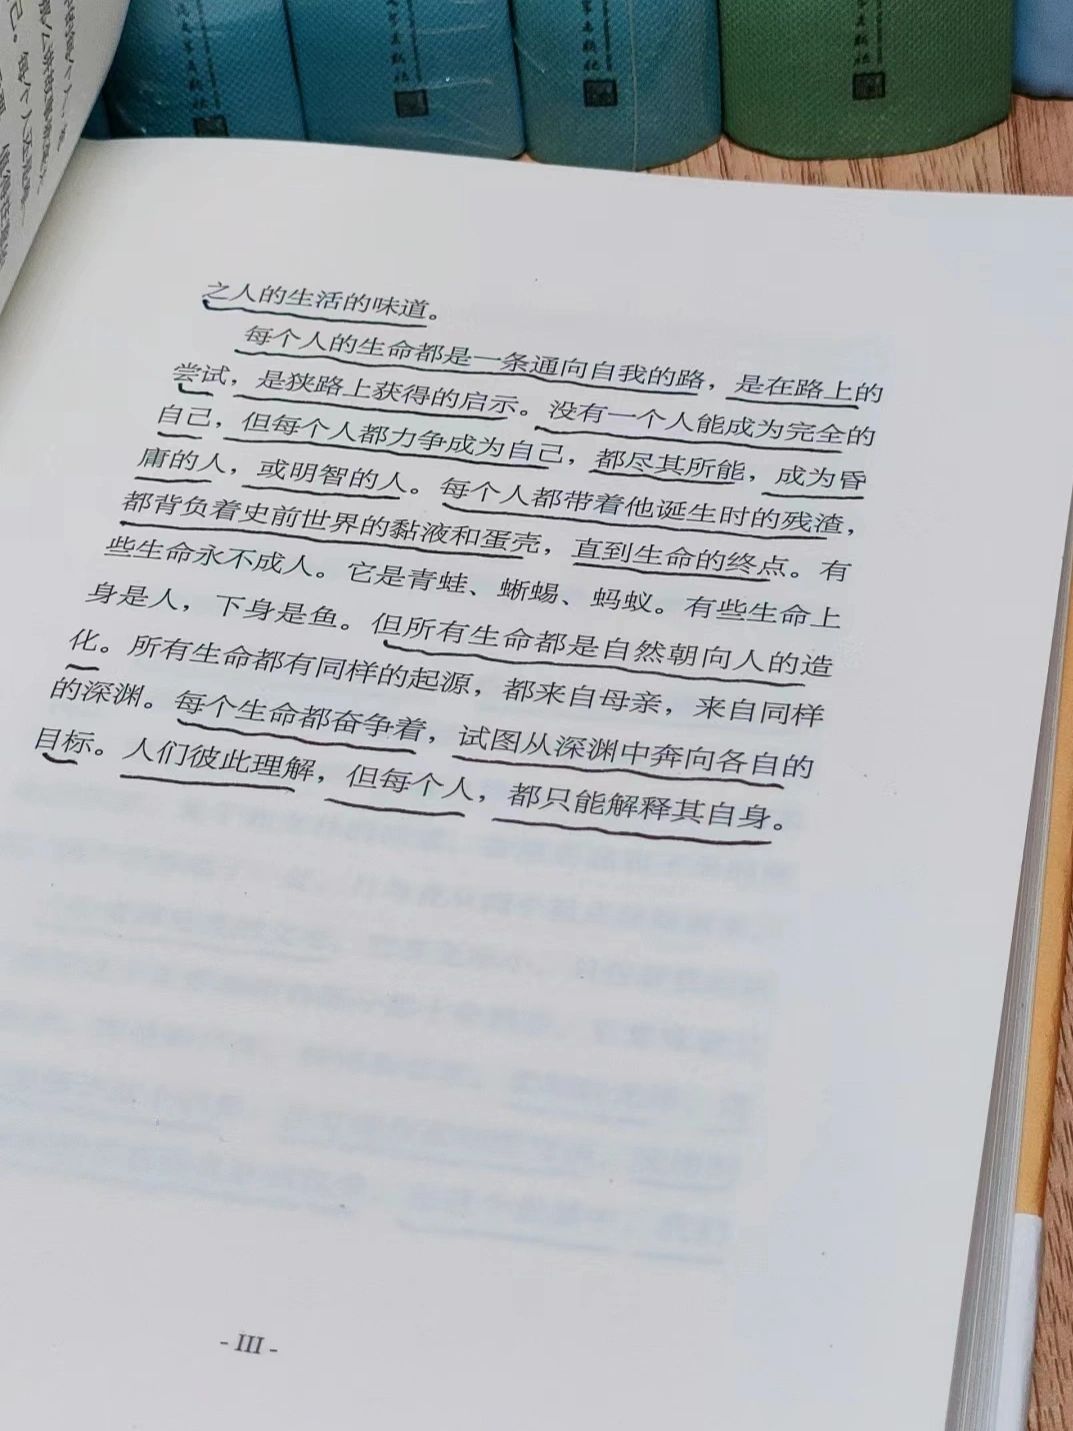 之人的生活的味道。
每个人的生命都是一条通向自我的路，是在路上的
尝试，是狭路上获得的启示。没有一个人能成为完全的
自己，但每个人都力争成为自己，都尽其所能，成为昏
庸的人，或明智的人。每个人都带着他诞生时的残渣，
都背负着史前世界的黏液和蛋壳，直到生命的终点。有
些生命永不成人。它是青蛙、蜥蜴、蚂蚁。有些生命上
身是人，下身是鱼。但所有生命都是自然朝向人的造
化。所有生命都有同样的起源，都来自母亲，来自同样
的深渊。每个生命都奋争着，试图从深渊中奔向各自的
目标。人们彼此理解，但每个人，都只能解释其自身。
- III -